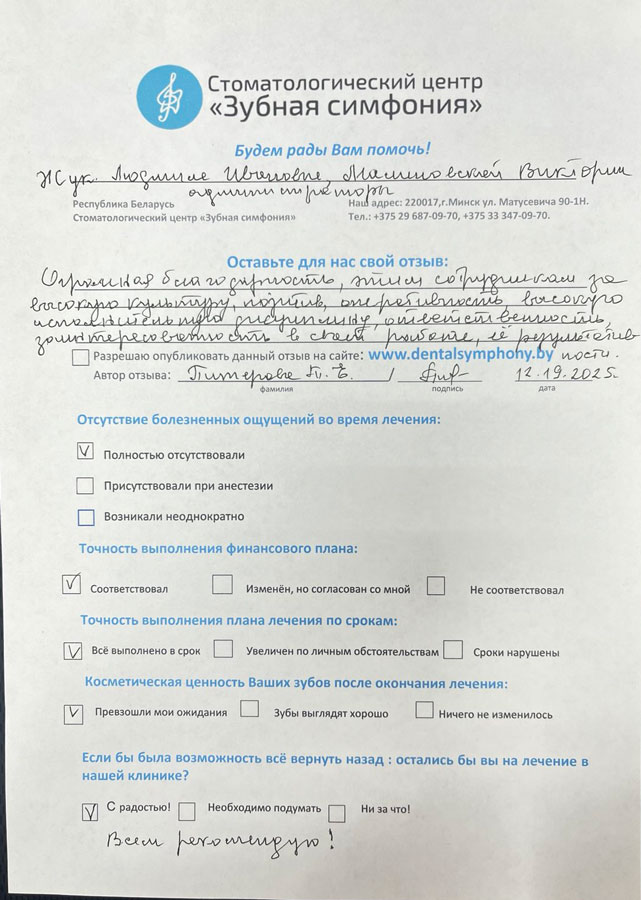 Стоматологический центр
«Зубная симфония»
Будем рады Вам помочь!
Жук Людмиле Ивановне, Малиновской Виктории
администраторы
Республика Беларусь
Наш адрес: 220017,г.Минск ул. Матусевича 90-1Н.
Стоматологический центр «Зубная симфония»
Тел.: +375 29 687-09-70, +375 33 347-09-70.
Оставьте для нас свой отзыв:
Огромная благодарность, этим сотрудникам за
высокую культуру, позитив, оперативность, высокую
исполнительную дисциплину, ответственность,
заинтересованность в своей работе, её результатив
Разрешаю опубликовать данный отзыв на сайте: www.dentalsymphony.by ности.
Автор отзыва: / 12.19.2025г.
фамилия подпись дата
Отсутствие болезненных ощущений во время лечения:
V Полностью отсутствовали
Присутствовали при анестезии
Возникали неоднократно
Точность выполнения финансового плана:
V Соответствовал Изменён, но согласован со мной Не соответствовал
Точность выполнения плана лечения по срокам:
V Всё выполнено в срок Увеличен по личным обстоятельствам Сроки нарушены
Косметическая ценность Ваших зубов после окончания лечения:
V Превзошли мои ожидания Зубы выглядят хорошо Ничего не изменилось
Если бы была возможность всё вернуть назад : остались бы вы на лечение в
нашей клинике?
V С радостью! Необходимо подумать Ни за что!
Всем рекомендую!